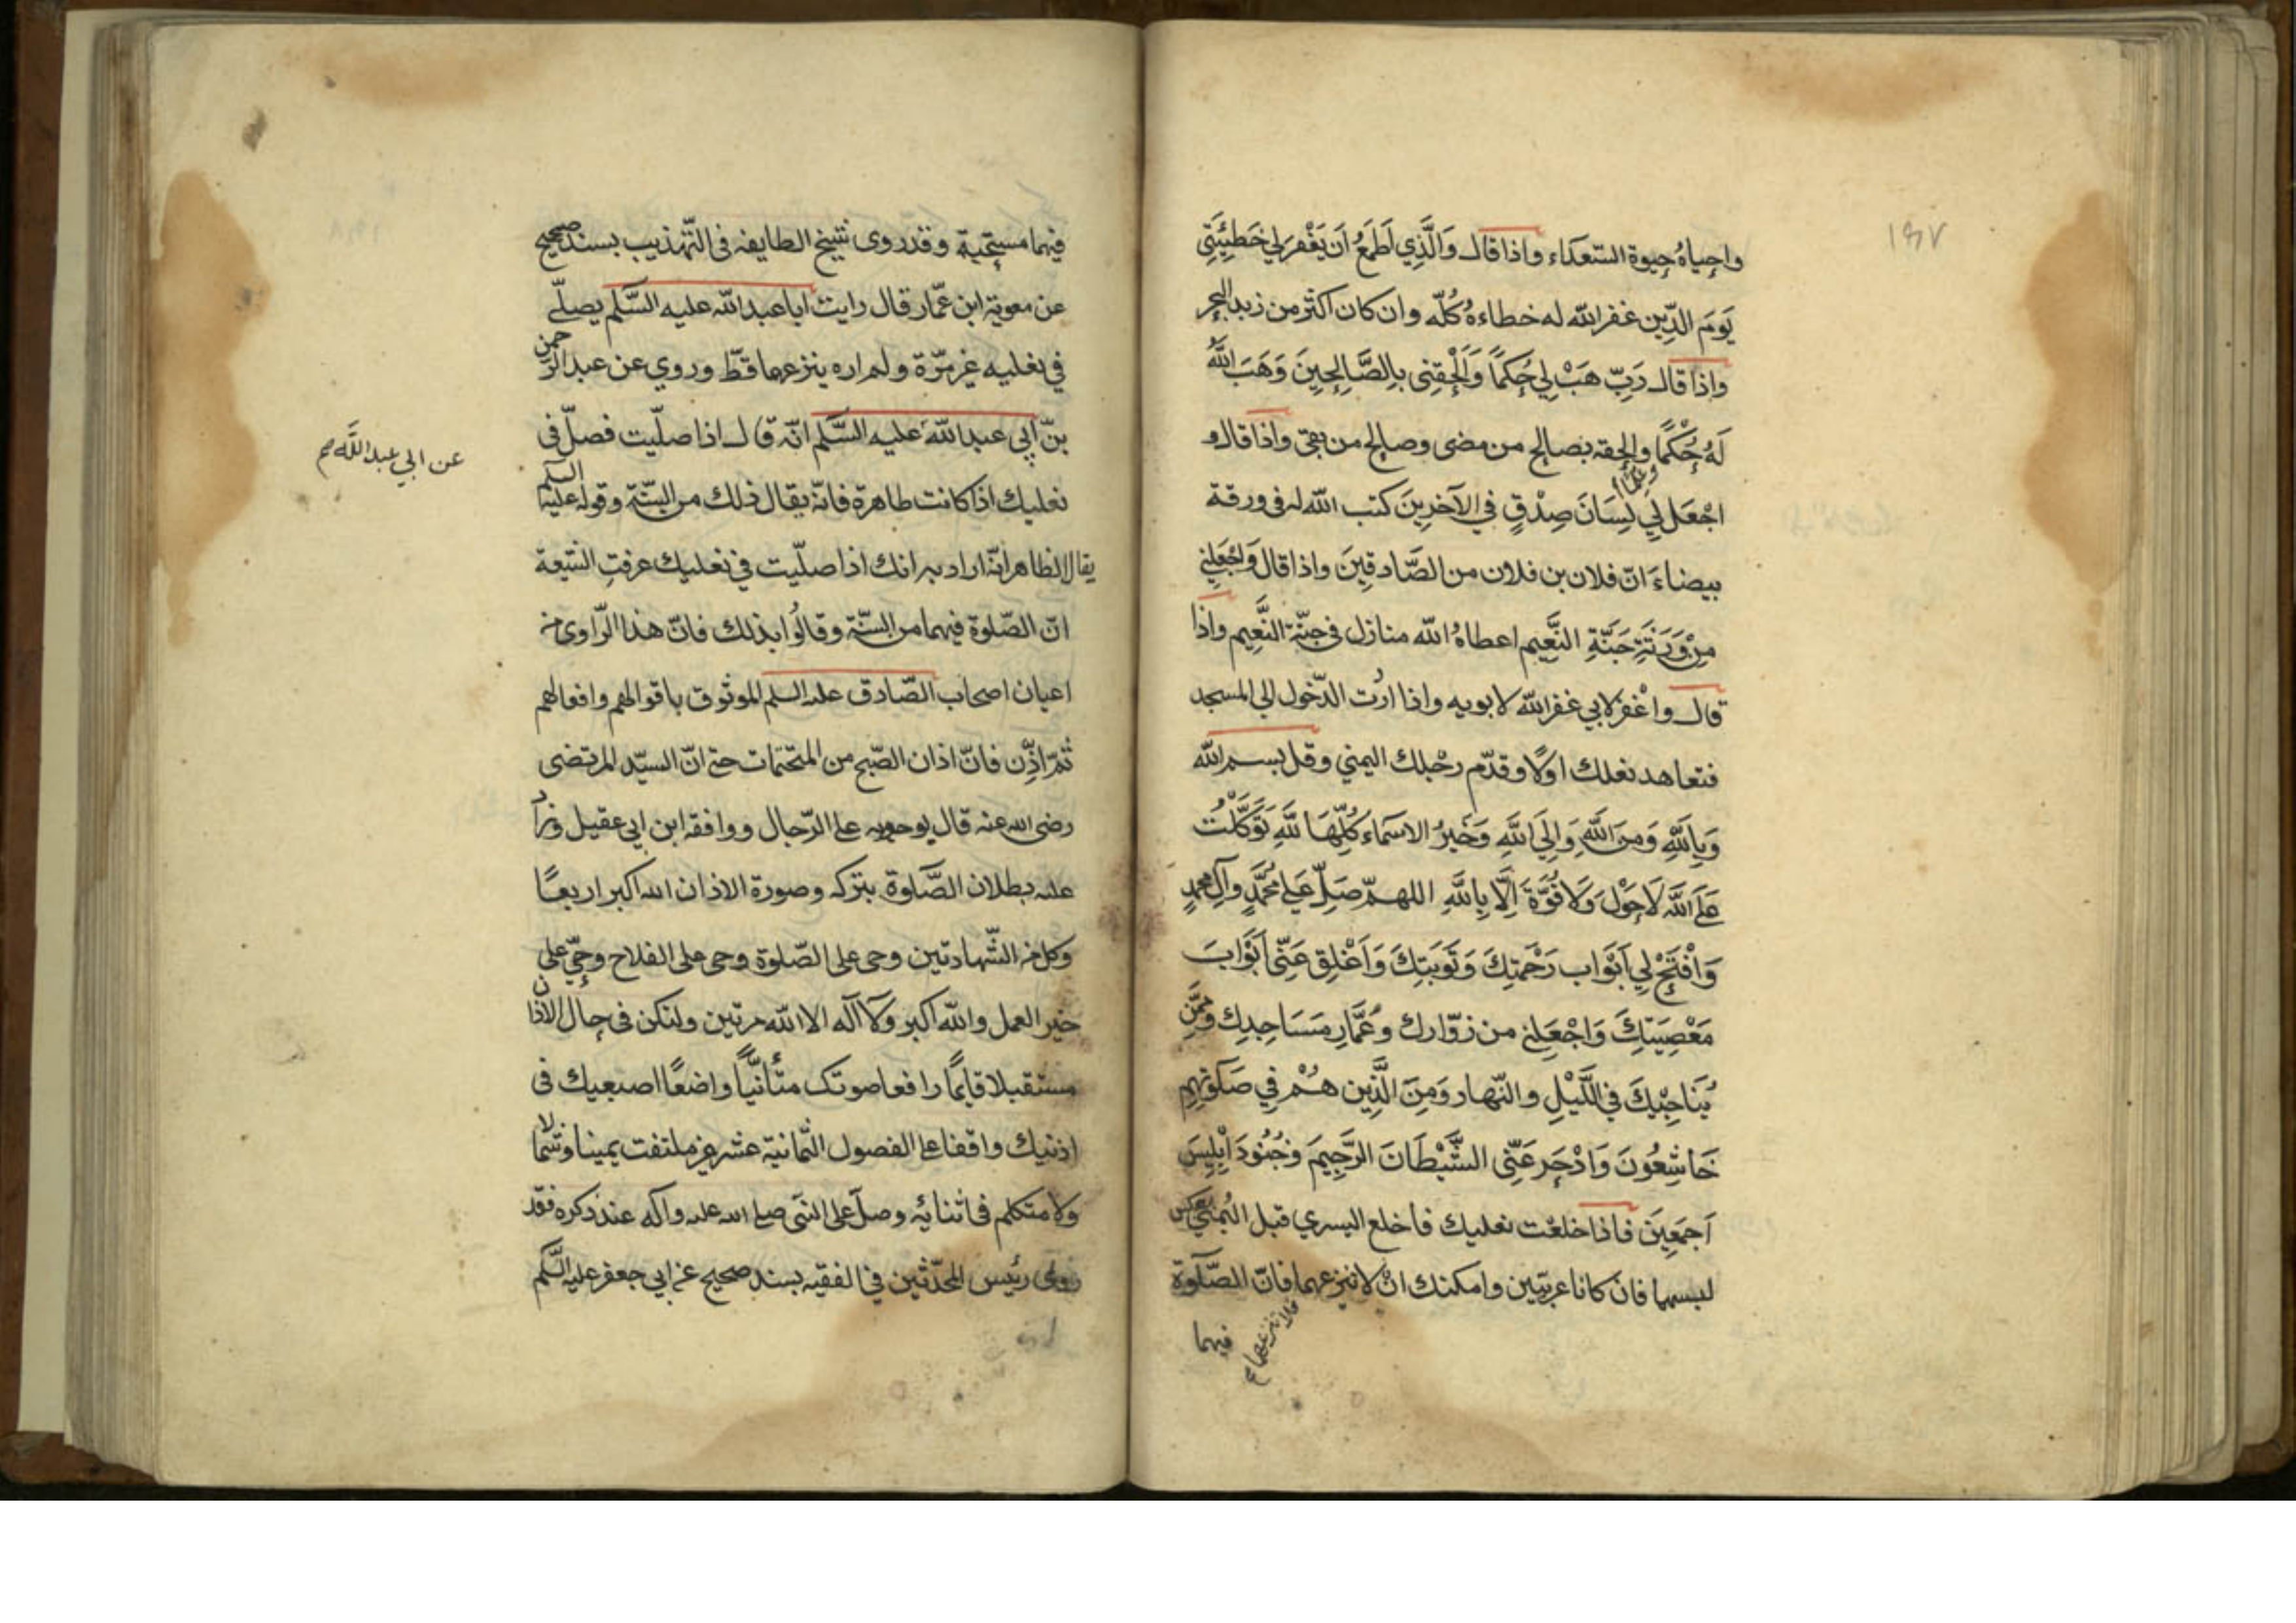 واحياهُ حيوة السّعدَاء واذا قال وَالَّذِي اَطمَعُ اَن يَغْفِرَ لِي خَطِيئَتِي
يَومَ الدِّينِ غفر الله له خطاءهُ كُلّه وان كان اكثر من زبد البحر
واذا قال رَبِّ هَبْ لِي حُكمًا وَاَلْحِقنِي بِالصَّالِحِينَ وَهَبَ اللهُ
لَهُ حُكْمًا والحقه بصالح من مضى وصالح من بقى واذا قال و
وعلما
اجْعَل لِي لِسَانَ صِدْقٍ في الآخِرِينَ كتب الله له فى ورقة
بيضاءَ انّ فلان بن فلان من الصَّادقِينَ واذا قال وَاجْعَلنِي
مِنْ وَرَثَةِ جَنَّةِ النَّعِيم اعطاهُ الله منازل فى جنّة النَّعِيم واذا
قال واغْفر لابي غفر الله لابويه واذا اردت الدّخول الى المسجد
فتعاهد نعلك اولًا وقدّم رجْلك اليمني وقل بسم الله
وَبِاللهِ وَمِنَ اللهِ وَاِلَى اللهِ وَخَيرُ الاسمَاءِ كُلِّهَا للهِ تَوَكَّلْتُ
عَلَى اللهِ لَاحَوْلَ وَلَا قُوَّةَ اِلَّا بِاللهِ اللهمّ صَلِّ عَلى مُحَمَّدٍ وآلِ محمدٍ
وَافْتَحْ لِي اَبْوَاب رَحْمَتِكَ وَتَوبَتِكَ وَاَغْلِق عَنِّى اَبْوَابَ
مَعْصِيَتِكَ وَاجْعَلنِي من زوّارك وعُمَّارِ مَسَاجِدِك وممَّن
يُنَاجِيْكَ في اللَّيْلِ والنّهار وَمِنَ الَّذِين هُمْ فِي صَلوتِهِم
خَاشِعُونَ وَادْحَر عَنِّى الشَّيْطَانَ الرَّجِيمَ وَجُنُودَ اِبْلِيسَ
اَجمَعِينَ فاذا خلعْت نعليك فاخلع اليسري قبل اليُمنى عكس
لبسهما فان كانا عربيّين وامكنك انْ لا تنزعهما فانّ الصّلوة
فلا تنزعهما
فيهما
فيهما مستحبّة وقد روى شيخ الطايفه فى التّهذيب بسند صحيح
عن معوية ابن عمّار قال رايت اباعبدالله عليه السَّلم يصلّي
في نعليه غير مرّة ولم اره ينزعهما قطّ وروي عن عبد الرّحمن
بنّ اَبِي عبد الله عليه السَّلم انّه قال اذا صلّيت فصلّ فى
عن ابي عبد الله
نعليك اذا كانت طاهرة فانّه يقال ذلك من السّنّة وقوله عليه السلم
يقال الظاهر انّه اراد به انك اذا صلّيت في نعليك عرفتِ الشّيعة
انّ الصّلوة فيهما من السنّة وقالُوا بذلك فانّ هذا الرّاوى من
اعيان اصحاب الصّادق عليه السلم الموثوق باقوالهم وافعالهم
ثمّ اذّن فانّ اذان الصّبح من المتحتمات حتى انّ السيّد المرتضى
رضى الله عنه قال بوجوبه على الرّجال ووافقه ابن ابي عقيل وزاد
عليه بطلان الصّلوة بتركه وصورة الاذان الله اكبر اربعًا
وكل من الشّهادتين وحى على الصّلوة وحى على الفلاح وحيّ على
خير العمل والله اكبر ولا آله الا الله مرتين ولتكن فى حال الاذان
مستقبلا قايمًا رافعا صوتك متأنيًّا واضعًا اصبعيك فى
اذنيك واقفا على الفصول الثّمانية عشر غير ملتفت يمينا وشمالا
ولا متكلم فى اثنائه وصلّ على النبّى صلى الله عليه وآله عند ذكره فقد
روى رئيس المحدّثين في الفقيه بسند صحيح عن ابي جعفر عليه السَّلم